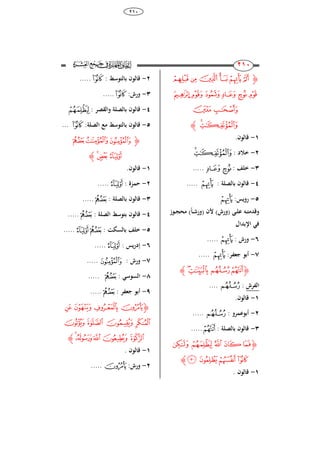 ٢١٠
٢١٠
﴿ أَلَمْ يَأْتِهِمْ نَبَأُ ٱلَّذِينَ مِن قَبْلِهِمْ
قَوْمِ نُوحٍ وَعَادٍ وَثَمُودَ وَقَوْمِ إِبْرَٰهِيمَ
وَأَصْحَٰبِ مَدْيَنَ
وَٱلْمُؤْتَفِكَٰتِ ﴾
١- قالون.
٢- خلاد : وَٱلْمُؤْتَفِكَٰتِ
٣- خلف : نُوحٍ وَعَادٍ .....
٤- قالون بالصلة : يَأْتِهِمْ .....
٥- رويس: يَأْتِهِمْ
وقدمته على (ورش) لأن (ورشاً) محجوز
في الإبدال
٦- ورش : يَأْتِهِمْ .....
٧- أبو جعفر: يَأْتِهِمْ .....
﴿ أَتَتْهُمْ رُسُلُهُم بِٱلْبَيِّنَٰتِ ﴾
الفرش : رُسُلُهُم
١- قالون.
٢- أبوعمرو : رُسُلُهُم .....
٣- قالون بالصلة : أَتَتْهُمْ .....
﴿ فَمَا كَانَ ٱللَّهُ لِيَظْلِمَهُمْ وَلَٰكِن
كَانُوٓا۟ أَنفُسَهُمْ يَظْلِمُونَ ٧٠ ﴾
١- قالون .
٢- قالون بالتوسط : كَانُوٓا۟ .....
٣- ورش: كَانُوٓا۟ .....
٤- قالون بالصلة والقصر : لِيَظْلِمَهُمْ
٥- قالون بالتوسط مع الصلة: كَانُوٓا۟ ...
﴿ وَٱلْمُؤْمِنُونَ وَٱلْمُؤْمِنَٰتُ بَعْضُهُمْ
أَوْلِيَآءُ بَعْضٍ ﴾
١- قالون.
٢- حمزة : أَوْلِيَآءُ .....
٣- قالون بالصلة : بَعْضُهُمْ .....
٤- قالون بتوسط الصلة : بَعْضُهُمْ .....
٥- خلف بالسكت : بَعْضُهُمْ أَوْلِيَآءُ .....
٦- إدريس : أَوْلِيَآءُ .....
٧- ورش : وَٱلْمُؤْمِنُونَ .....
٨- السوسي : بَعْضُهُمْ .....
٩- أبو جعفر : بَعْضُهُمْ .....
﴿ يَأْمُرُونَ بِٱلْمَعْرُوفِ وَيَنْهَوْنَ عَنِ
ٱلْمُنكَرِ وَيُقِيمُونَ ٱلصَّلَوٰةَ وَيُؤْتُونَ
ٱلزَّكَوٰةَ وَيُطِيعُونَ ٱللَّهَ وَرَسُولَهُۥٓ ﴾
١- قالون .
٢- ورش: يَأْمُرُونَ .....